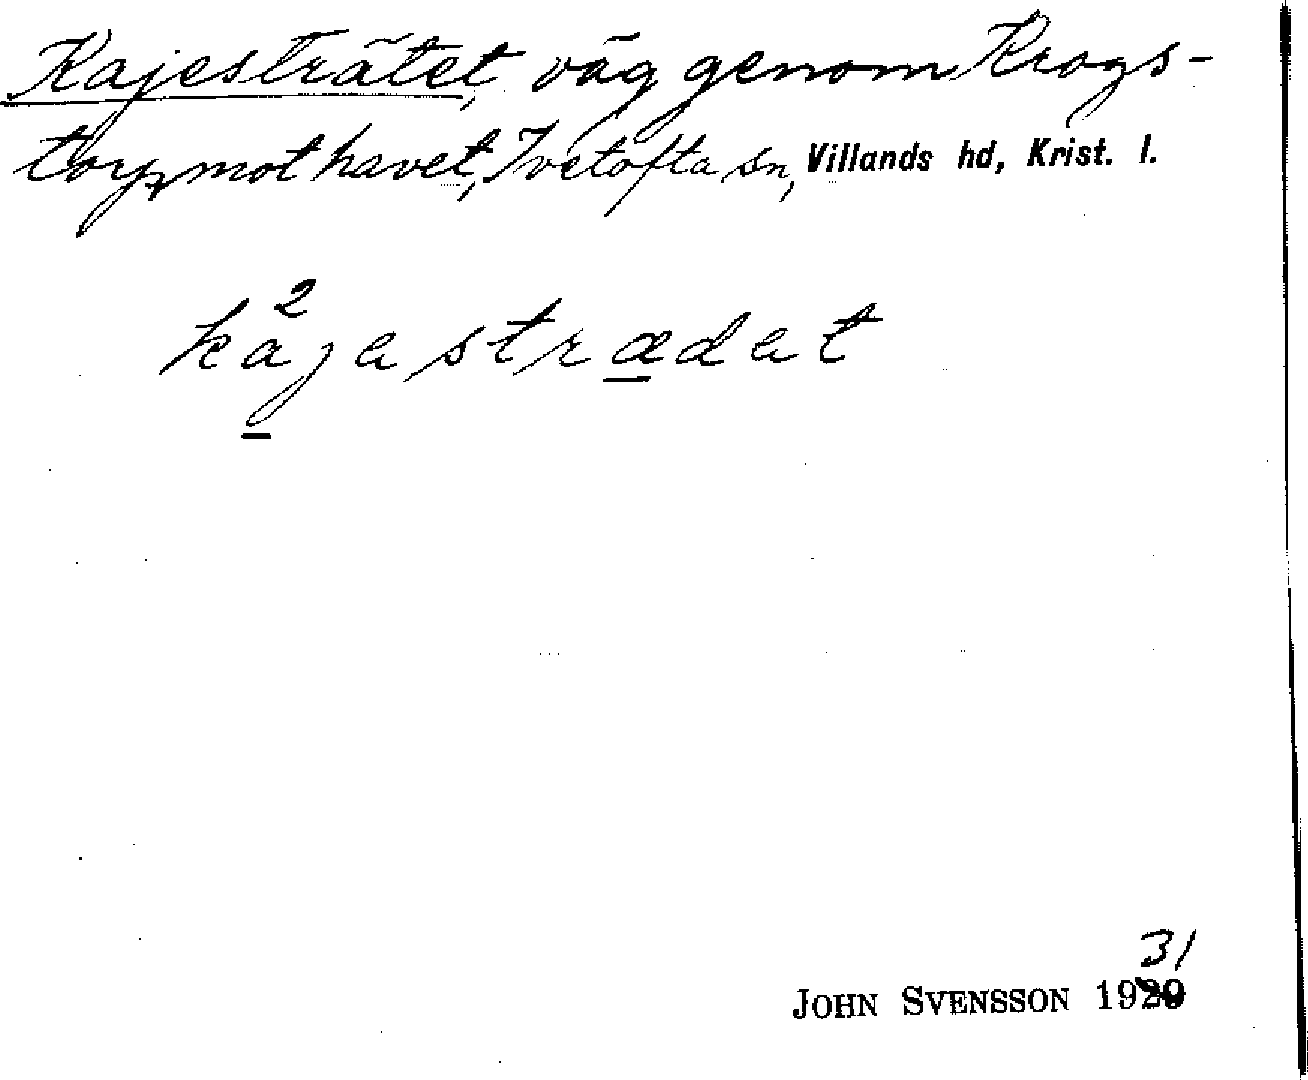 Kajesträtet, väg genom Krogs-
torp mot havet, Ivetofta sn, Villands hd, Krist. l.
2
kajastrædat
31
JOHN SVENSSON 1929